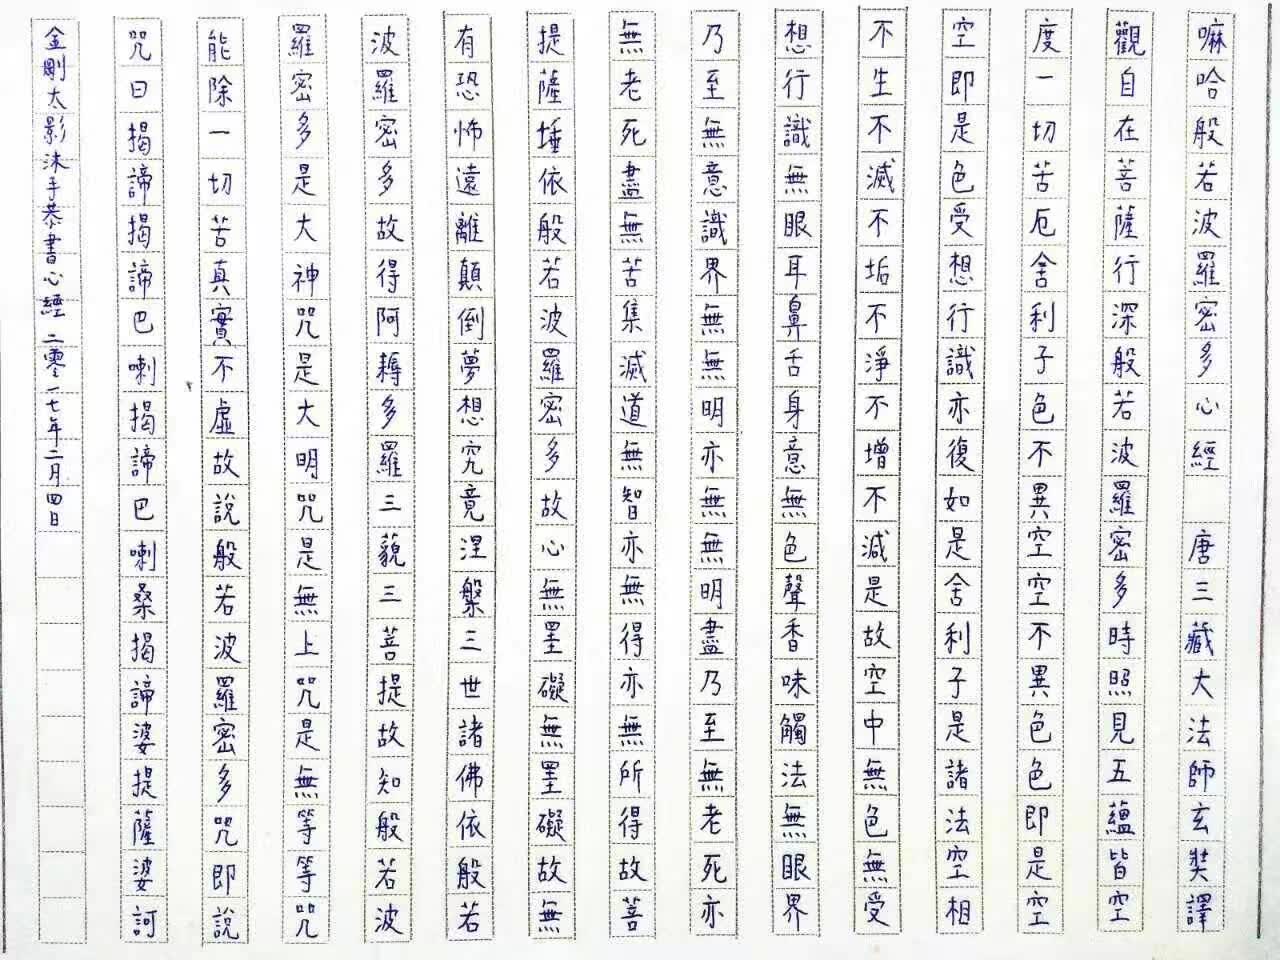 嘛哈般若波羅密多心經 唐三藏大法師玄奘譯
觀自在菩薩行深般若波羅密多時照見五蘊皆空
度一切苦厄舍利子色不異空空不異色色即是空
空即是色受想行識亦復如是舍利子是諸法空相
不生不滅不垢不淨不增不減是故空中無色無受
想行識無眼耳鼻舌身意無色聲香味觸法無眼界
乃至無意識界無無明亦無無明盡乃至無老死亦
無老死盡無苦集滅道無智亦無得亦無所得故菩
提薩埵依般若波羅密多故心無罣礙無罣礙故無
有恐怖遠離顛倒夢想究竟涅槃三世諸佛依般若
波羅密多故得阿耨多羅三藐三菩提故知般若波
羅密多是大神咒是大明咒是無上咒是無等等咒
能除一切苦真實不虛故說般若波羅密多咒即說
咒曰揭諦揭諦巴喇揭諦巴喇桑揭諦婆提薩婆訶
金剛太影沐手恭書心經 二零一七年二月四日